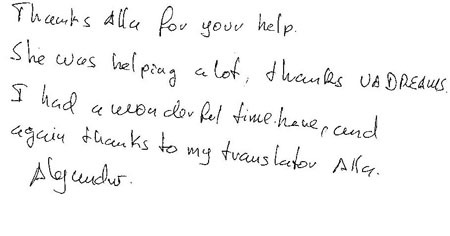 Thanks Alla for your help.
She was helping a lot, thanks UADREAMS.
I had a wonderful time here, and
again thanks to my translator Alla.
Alejandro.